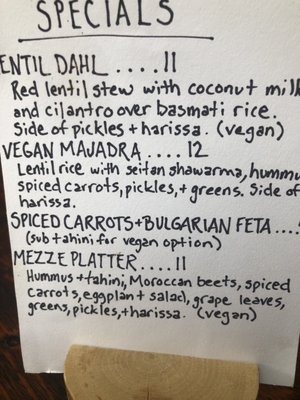 SPECIALS
ENTIL DAHL .... 11
Red lentil stew with coconut milk
and cilantro over basmati rice.
Side of pickles + harissa. (vegan)
VEGAN MAJADRA .... 12
Lentil rice with seitan shawarma, hummu
spiced carrots, pickles, + greens. Side of
harissa.
SPICED CARROTS + BULGARIAN FETA ....
(sub tahini for vegan option)
MEZZE PLATTER .... 11
Hummus + tahini, Moroccan beets, spiced
carrots, eggplant salad, grape leaves,
greens, pickles, + harissa. (vegan)